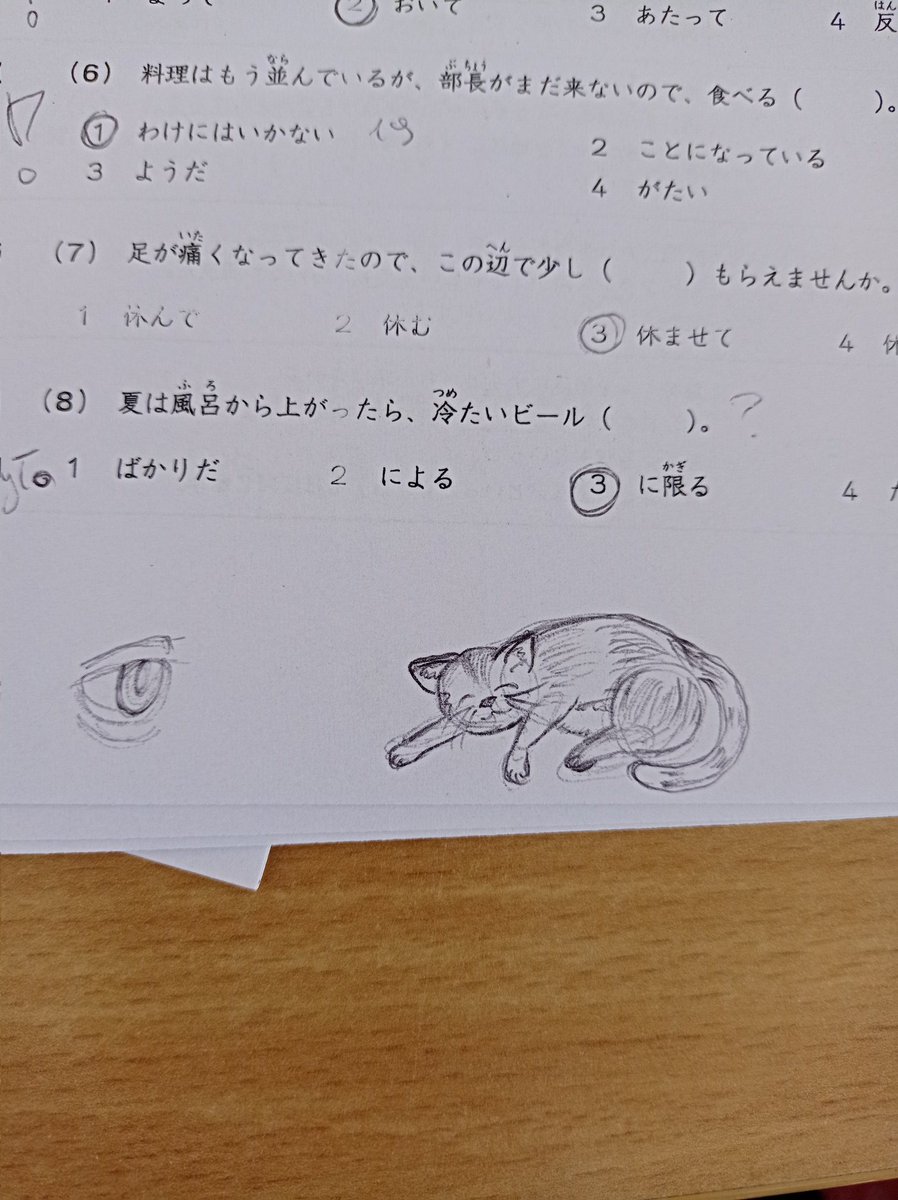 2 おいて 3 あたって 4 反
(6) 料理はもう並んでいるが、部長がまだ来ないので、食べる（　　）。
1 わけにはいかない
2 ことになっている
3 ようだ
4 がたい
(7) 足が痛くなってきたので、この辺で少し（　　）もらえませんか。
1 休んで 2 休む 3 休ませて 4 休
(8) 夏は風呂から上がったら、冷たいビール（　　）。?
1 ばかりだ 2 による 3 に限る 4